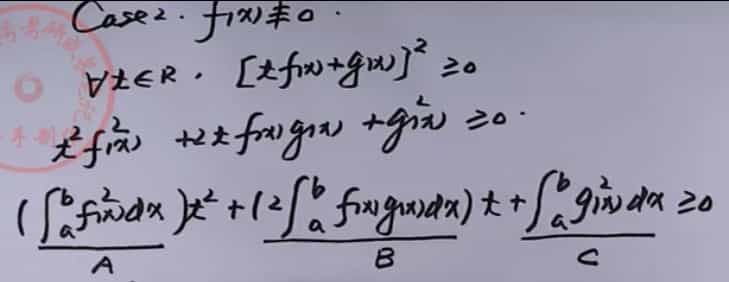 Case2. f(x)≢0.
∀t∈R. [tf(x)+g(x)]²≥0
t²f²(x)+2tf(x)g(x)+g²(x)≥0.
(∫ₐᵇf²(x)dx)t²+(2∫ₐᵇf(x)g(x)dx)t+∫ₐᵇg²(x)dx≥0
A B C